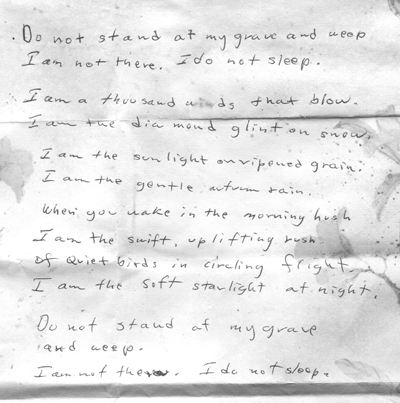 . Do not stand at my grave and weep
I am not there. I do not sleep.
I am a thousand winds that blow.
I am the diamond glint on snow.
I am the sunlight on ripened grain.
I am the gentle autumn rain.
When you wake in the morning hush
I am the swift, uplifting rush
Of quiet birds in circling flight.
I am the soft starlight at night.
Do not stand at my grave
and weep.
I am not there. I do not sleep.